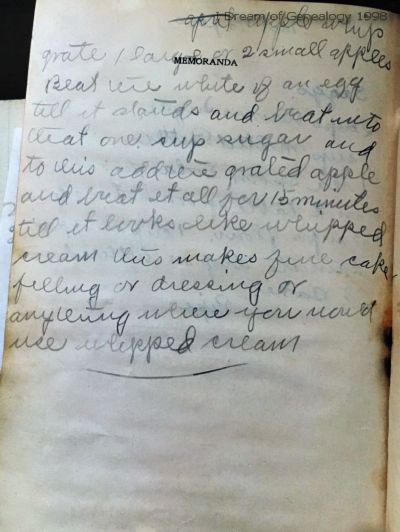 I Dream of Genealogy 1998
apple whip
grate 1 large or 2 small apples
MEMORANDA
Beat the white of an egg
till it stands and beat into
that one cup sugar and
to this add the grated apple
and beat it all for 15 minutes
till it looks like whipped
cream this makes fine cake
filling or dressing or
anything where you would
use whipped cream